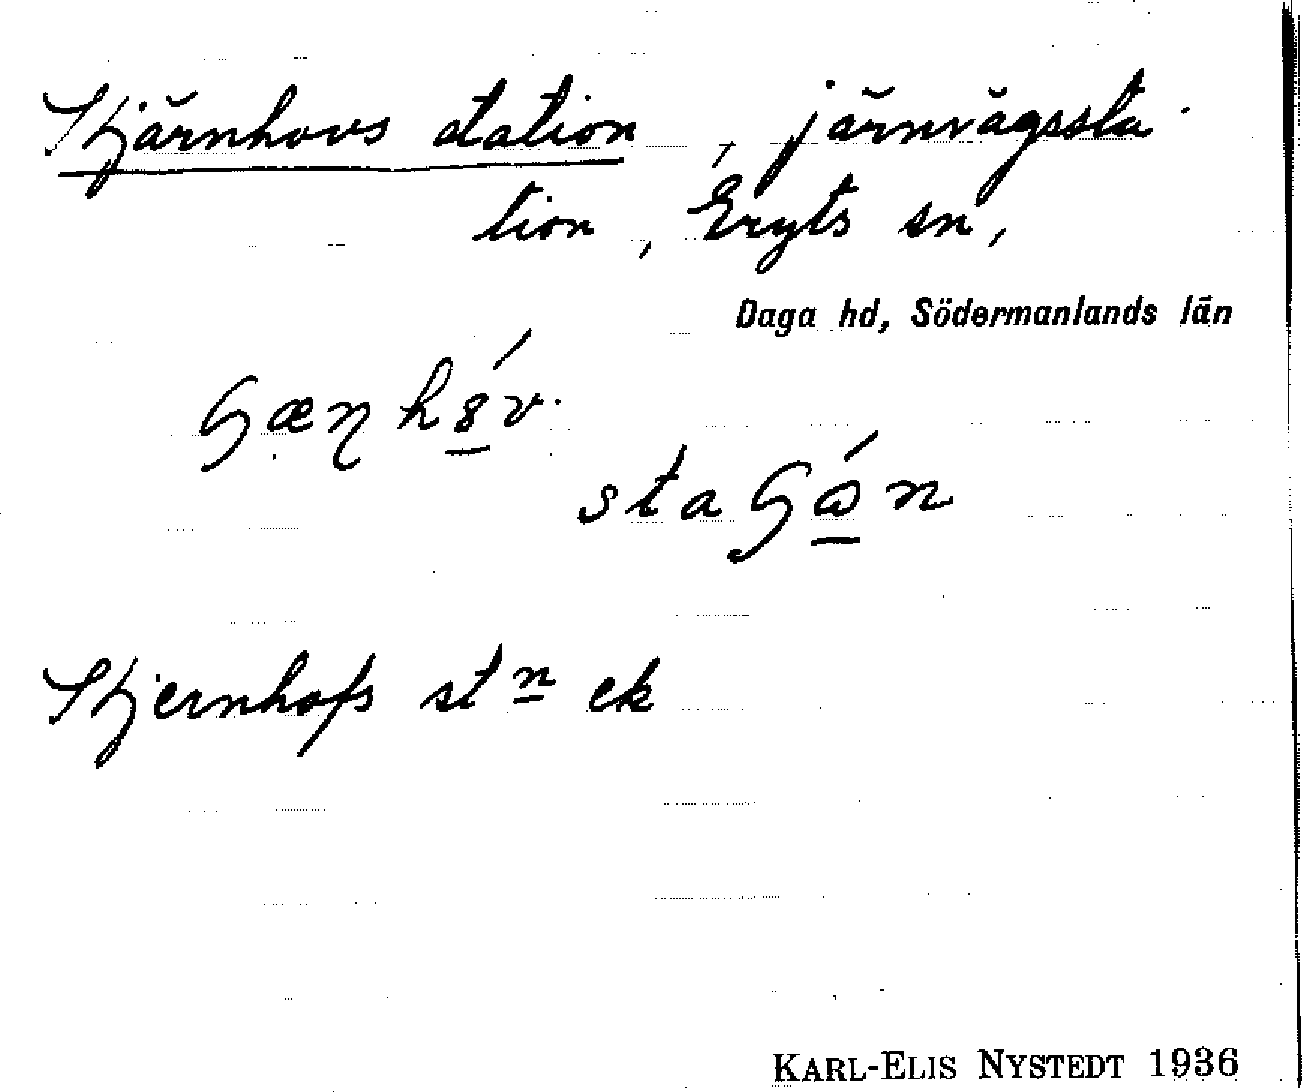 Stjärnhovs station, järnvägssta-
tion, Gryts sn,
Daga hd, Södermanlands län
Stjernhofs stn ek
KARL-ELIS NYSTEDT 1936